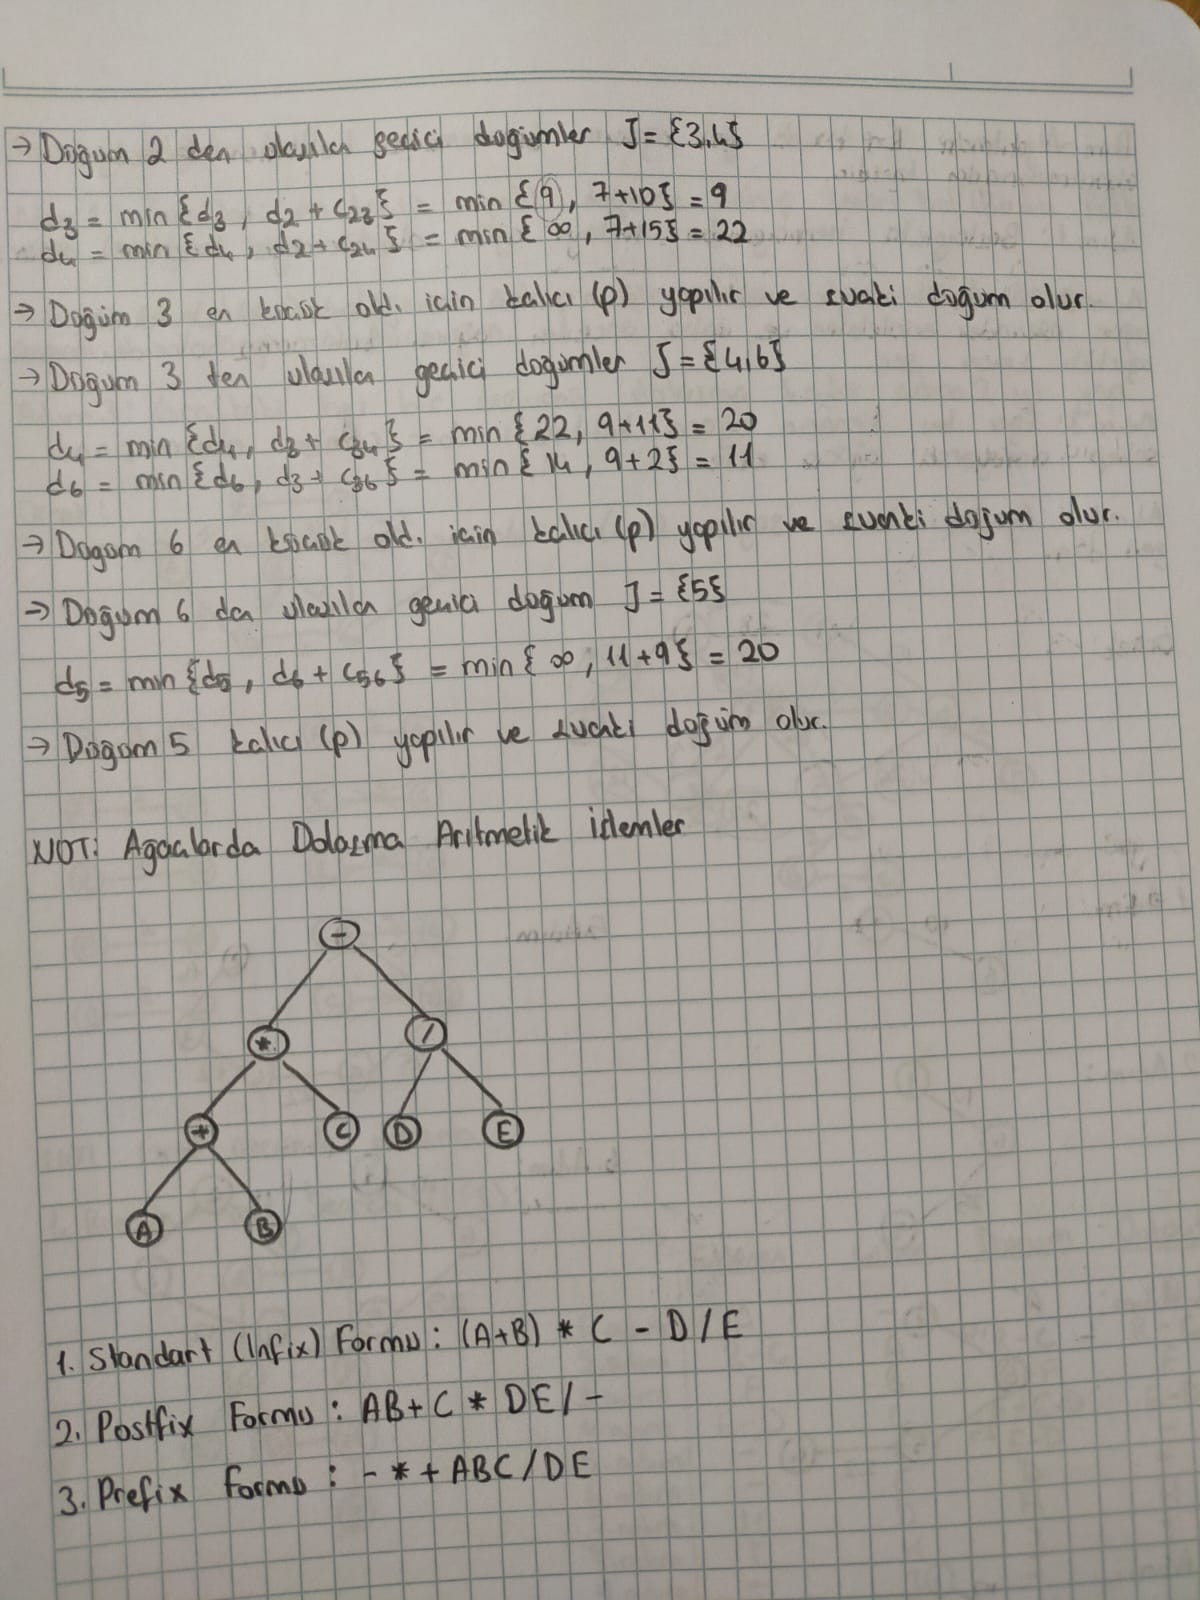 → Düğüm 2 den ulaşılan geçici düğümler J = {3,4}
d3 = min {d3, d2 + c23} = min {9, 7+10} = 9
d4 = min {d4, d2 + c24} = min {∞, 7+15} = 22
→ Düğüm 3 en küçük old. için kalıcı (p) yapılır ve şuanki düğüm olur.
→ Düğüm 3 ten ulaşılan geçici düğümler J = {4,6}
d4 = min {d4, d3 + c34} = min {22, 9+11} = 20
d6 = min {d6, d3 + c36} = min {14, 9+2} = 11
→ Düğüm 6 en küçük old. için kalıcı (p) yapılır ve şuanki düğüm olur.
→ Düğüm 6 dan ulaşılan geçici düğüm J = {5}
d5 = min {d5, d6 + c56} = min {∞, 11+9} = 20
→ Düğüm 5 kalıcı (p) yapılır ve şuanki düğüm olur.
NOT: Ağaçlarda Dolaşma Aritmetik işlemler
-
* /
+ C D E
A B
1. Standart (Infix) Formu: (A+B) * C - D / E
2. Postfix Formu: AB+C * DE / -
3. Prefix Formu: - * + ABC / DE